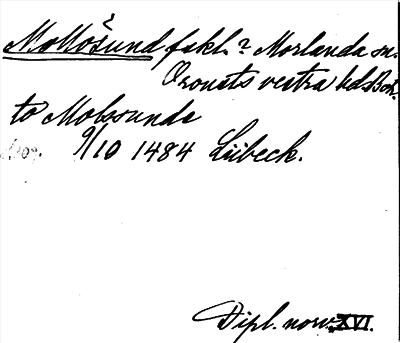 Mollösund fskl.? Morlanda sn.
Orousts vestra hds Boh.
to Molosunde
9/10 1484 Lübeck.
Dipl. norv. XVI.